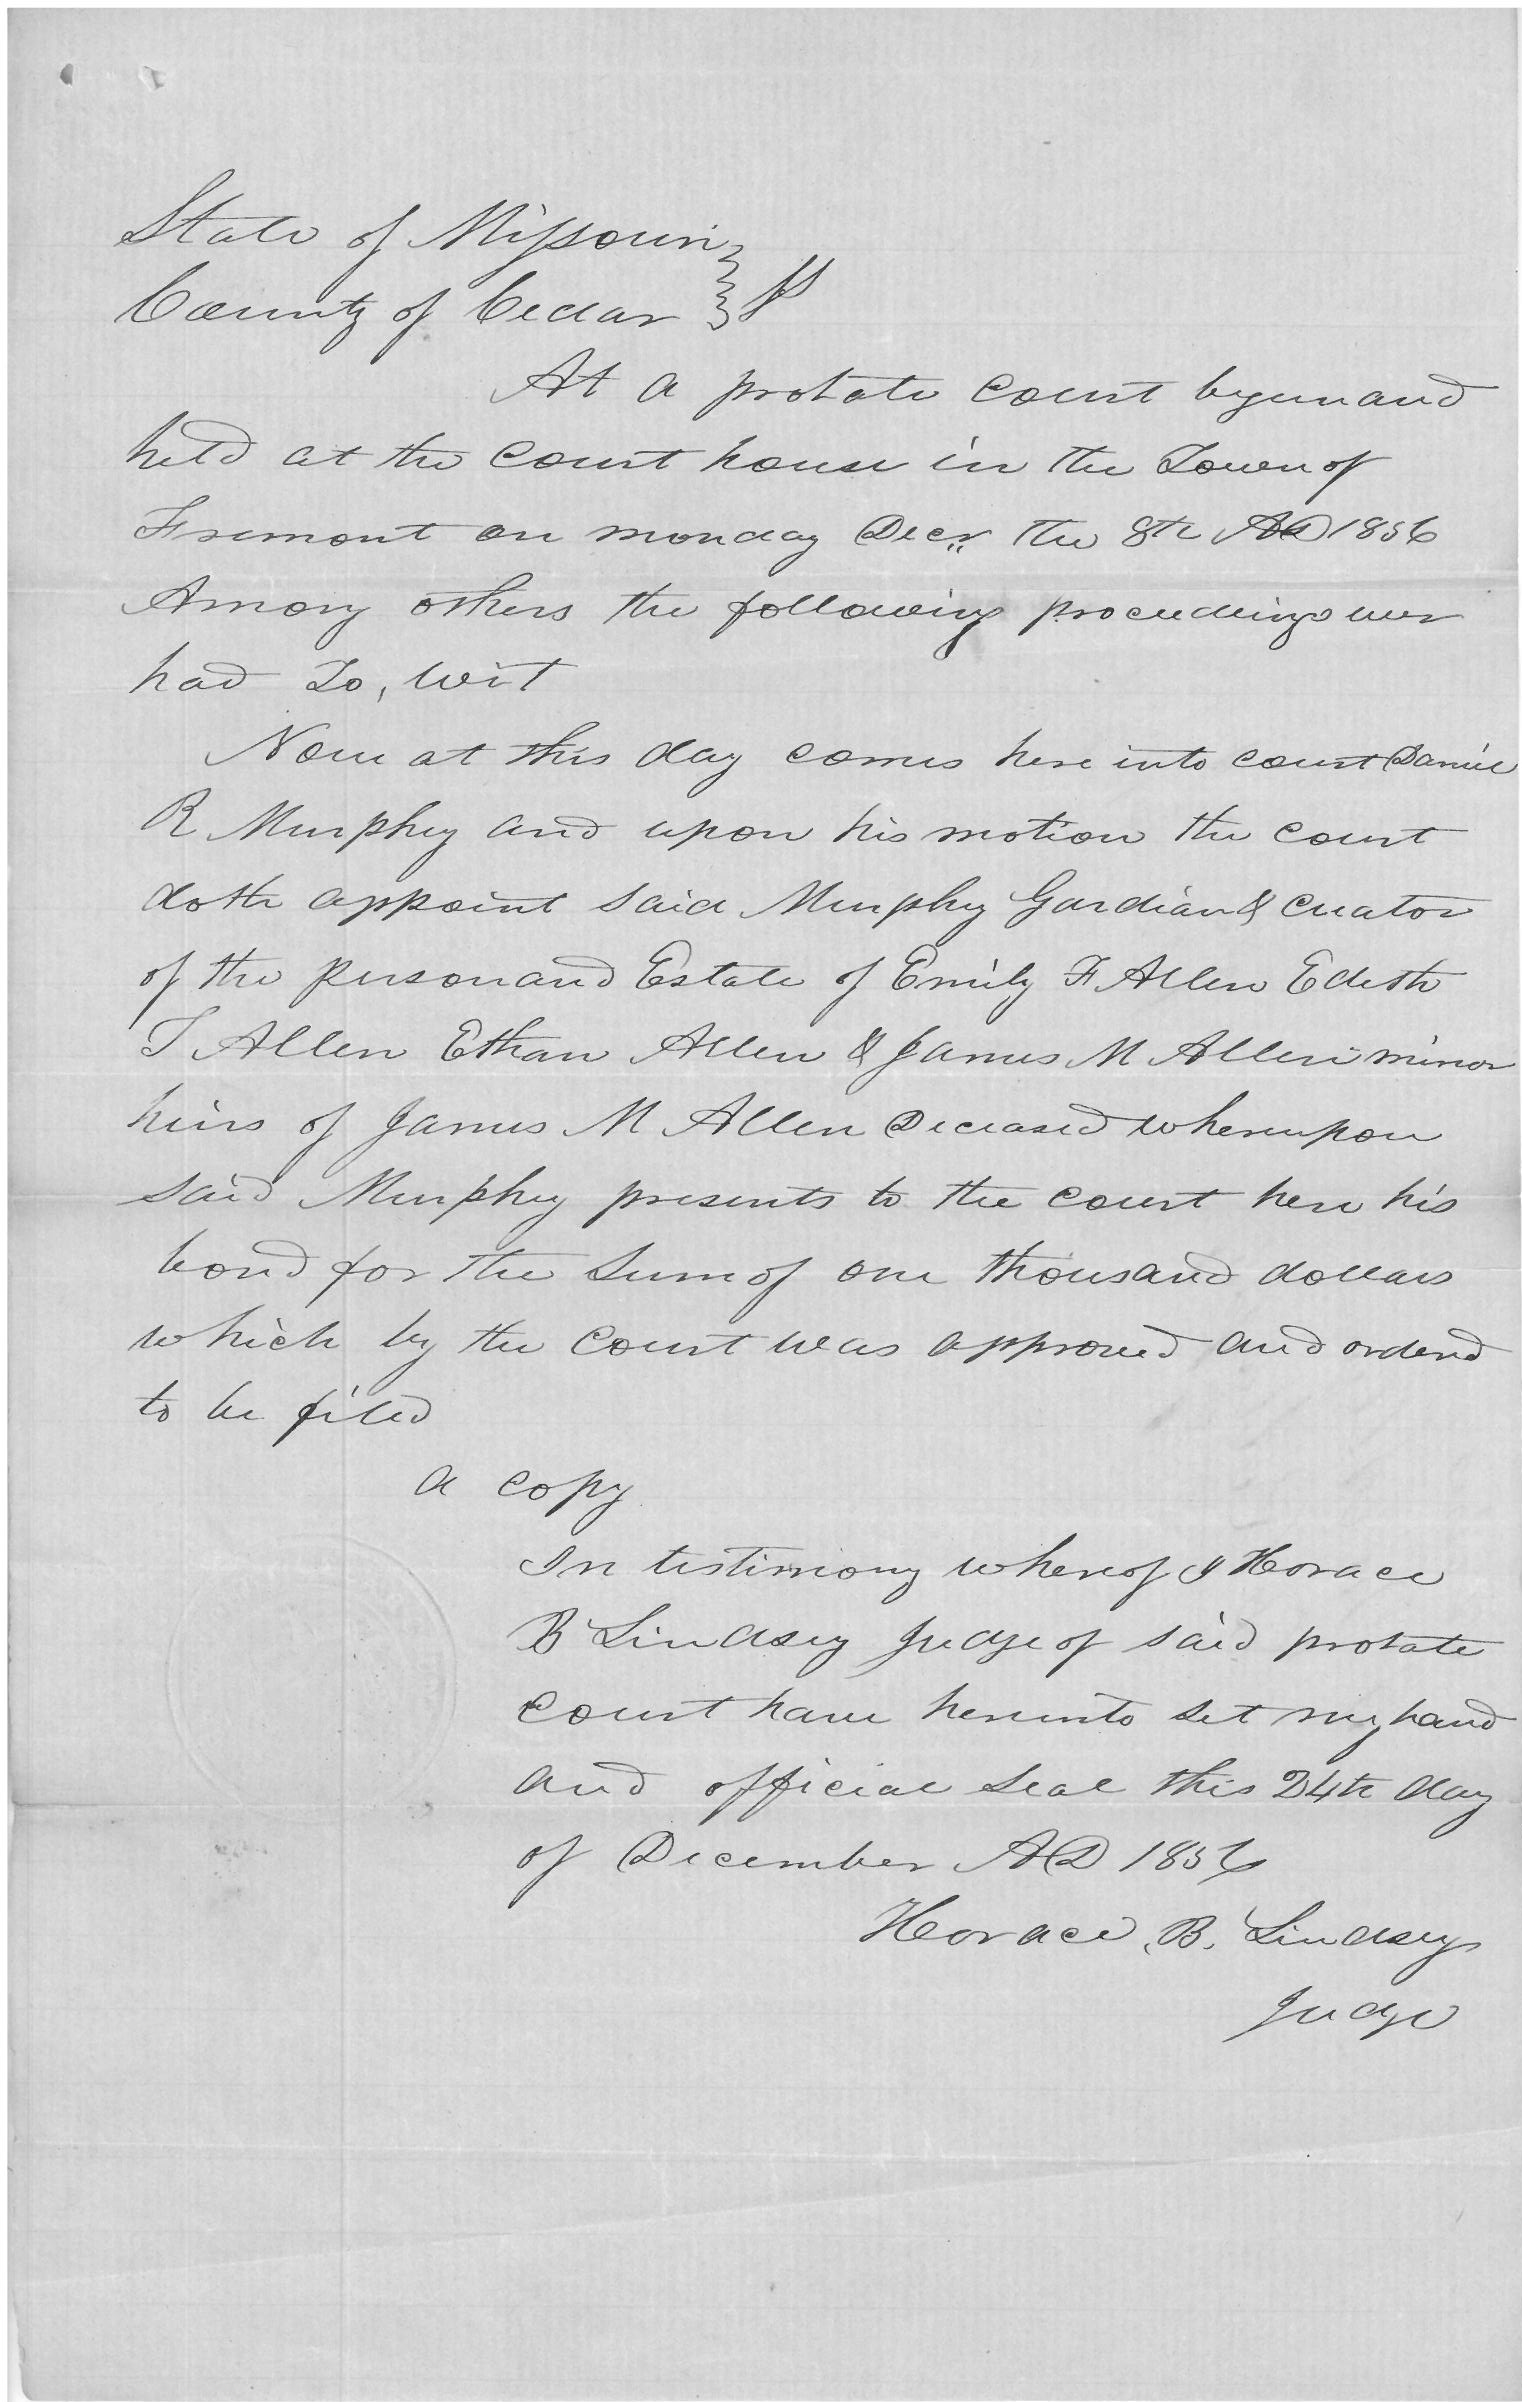 State of Missouri
County of Cedar } SS
At a probate court begun and
held at the court house in the Town of
Fremont on monday Decr the 8th AD 1856
Among others the following proceedings wer
had To, wit
Now at this day comes here into court Daniel
R Murphy and upon his motion the court
doth appoint said Murphy Gardian & Cuator
of the person and Estate of Emily F Allen Edeth
T Allen Ethan Allen & James M Allen minor
heirs of James M Allen Deceased whereupon
said Murphy presents to the court here his
bond for the sum of one thousand dollars
which by the court was approved and orderd
to be filed
a copy
In testimony whereof I Horace
B Lindsey Judge of said probate
court have hereunto set my hand
and official seal this 24th day
of December AD 1856
Horace, B. Lindsey
Judge